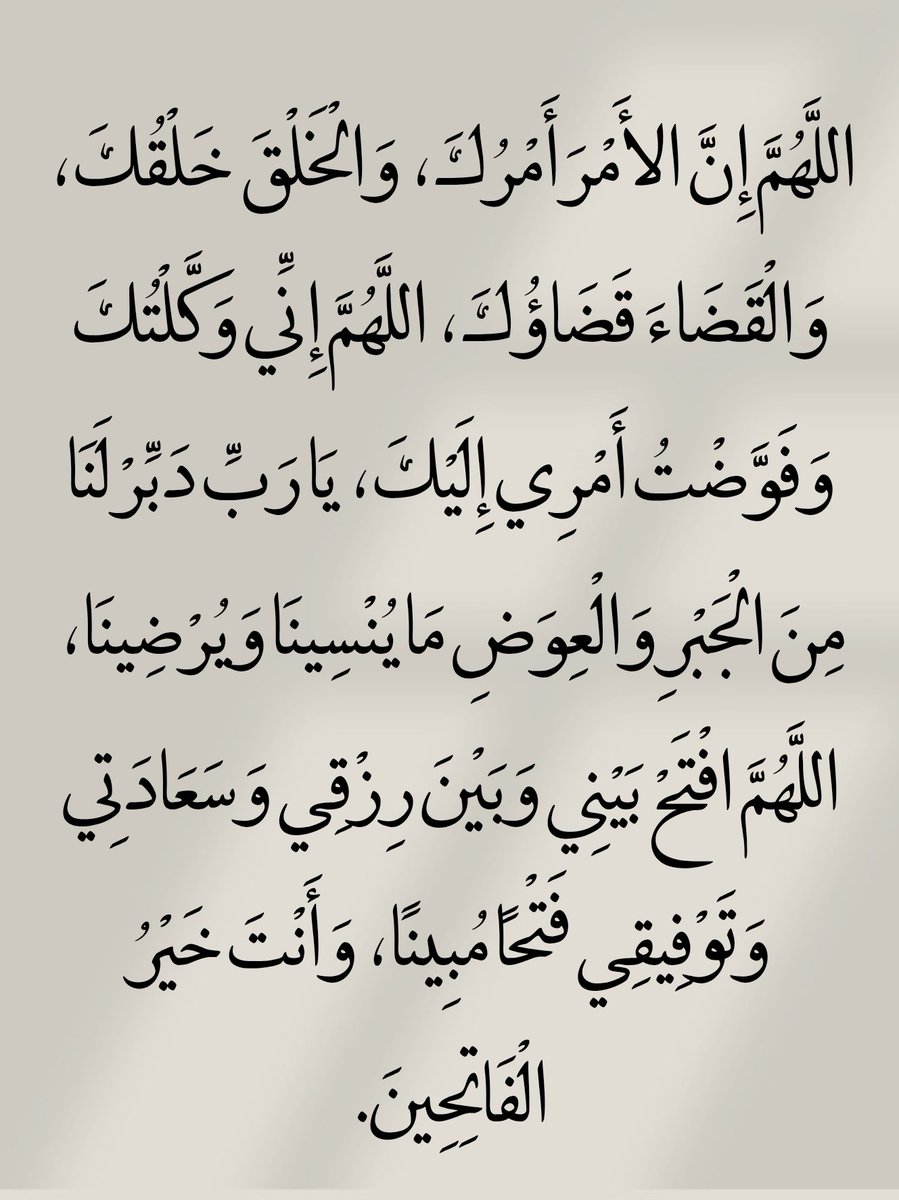 اللَّهُمَّ إِنَّ الأَمْرَ أَمْرُكَ، وَالْخَلْقَ خَلْقُكَ،
وَالْقَضَاءَ قَضَاؤُكَ، اللَّهُمَّ إِنِّي وَكَّلْتُكَ
وَفَوَّضْتُ أَمْرِي إِلَيْكَ، يَا رَبِّ دَبِّرْ لَنَا
مِنَ الْجَبْرِ وَالْعِوَضِ مَا يُنْسِينَا وَيُرْضِينَا،
اللَّهُمَّ افْتَحْ بَيْنِي وَبَيْنَ رِزْقِي وَسَعَادَتِي
وَتَوْفِيقِي فَتْحًا مُبِينًا، وَأَنْتَ خَيْرُ
الْفَاتِحِينَ.